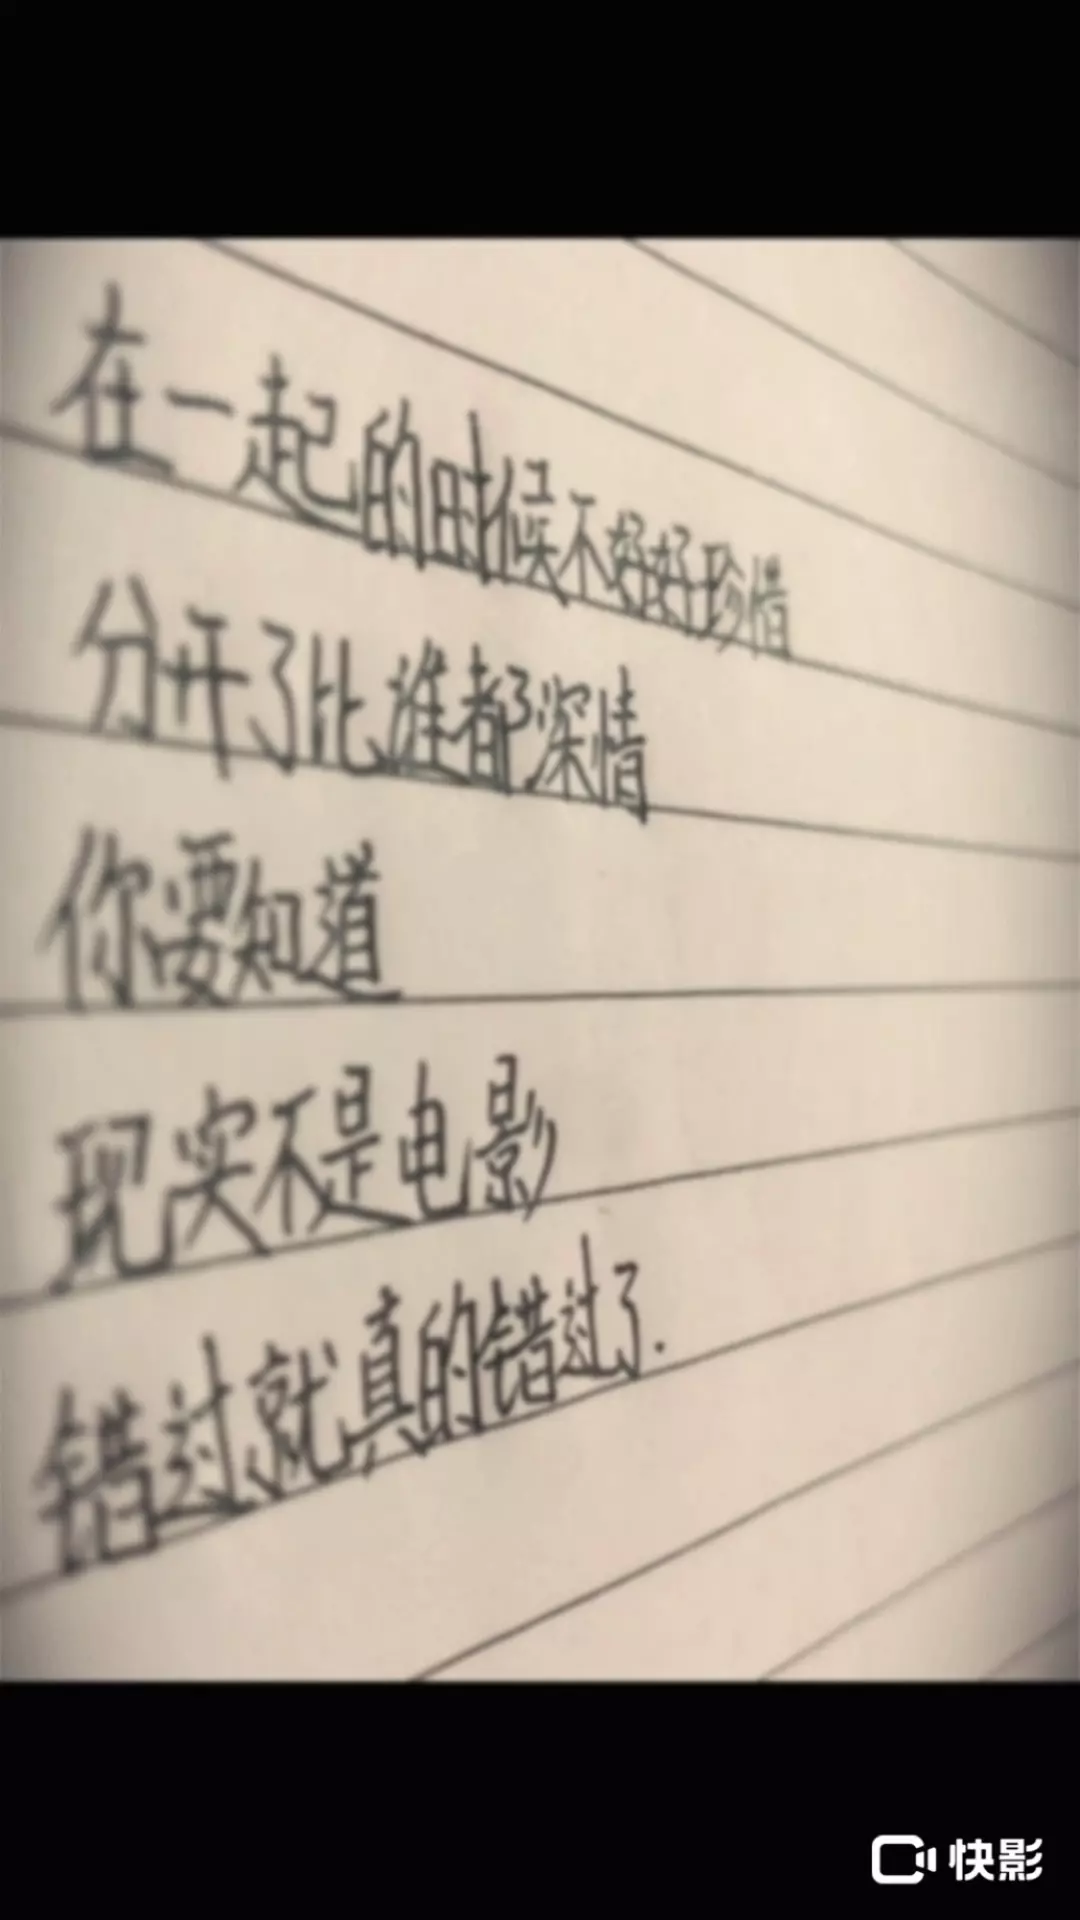 在一起的时候不好好珍惜
分开了比谁都深情
你要知道
现实不是电影
错过就真的错过了.
快影